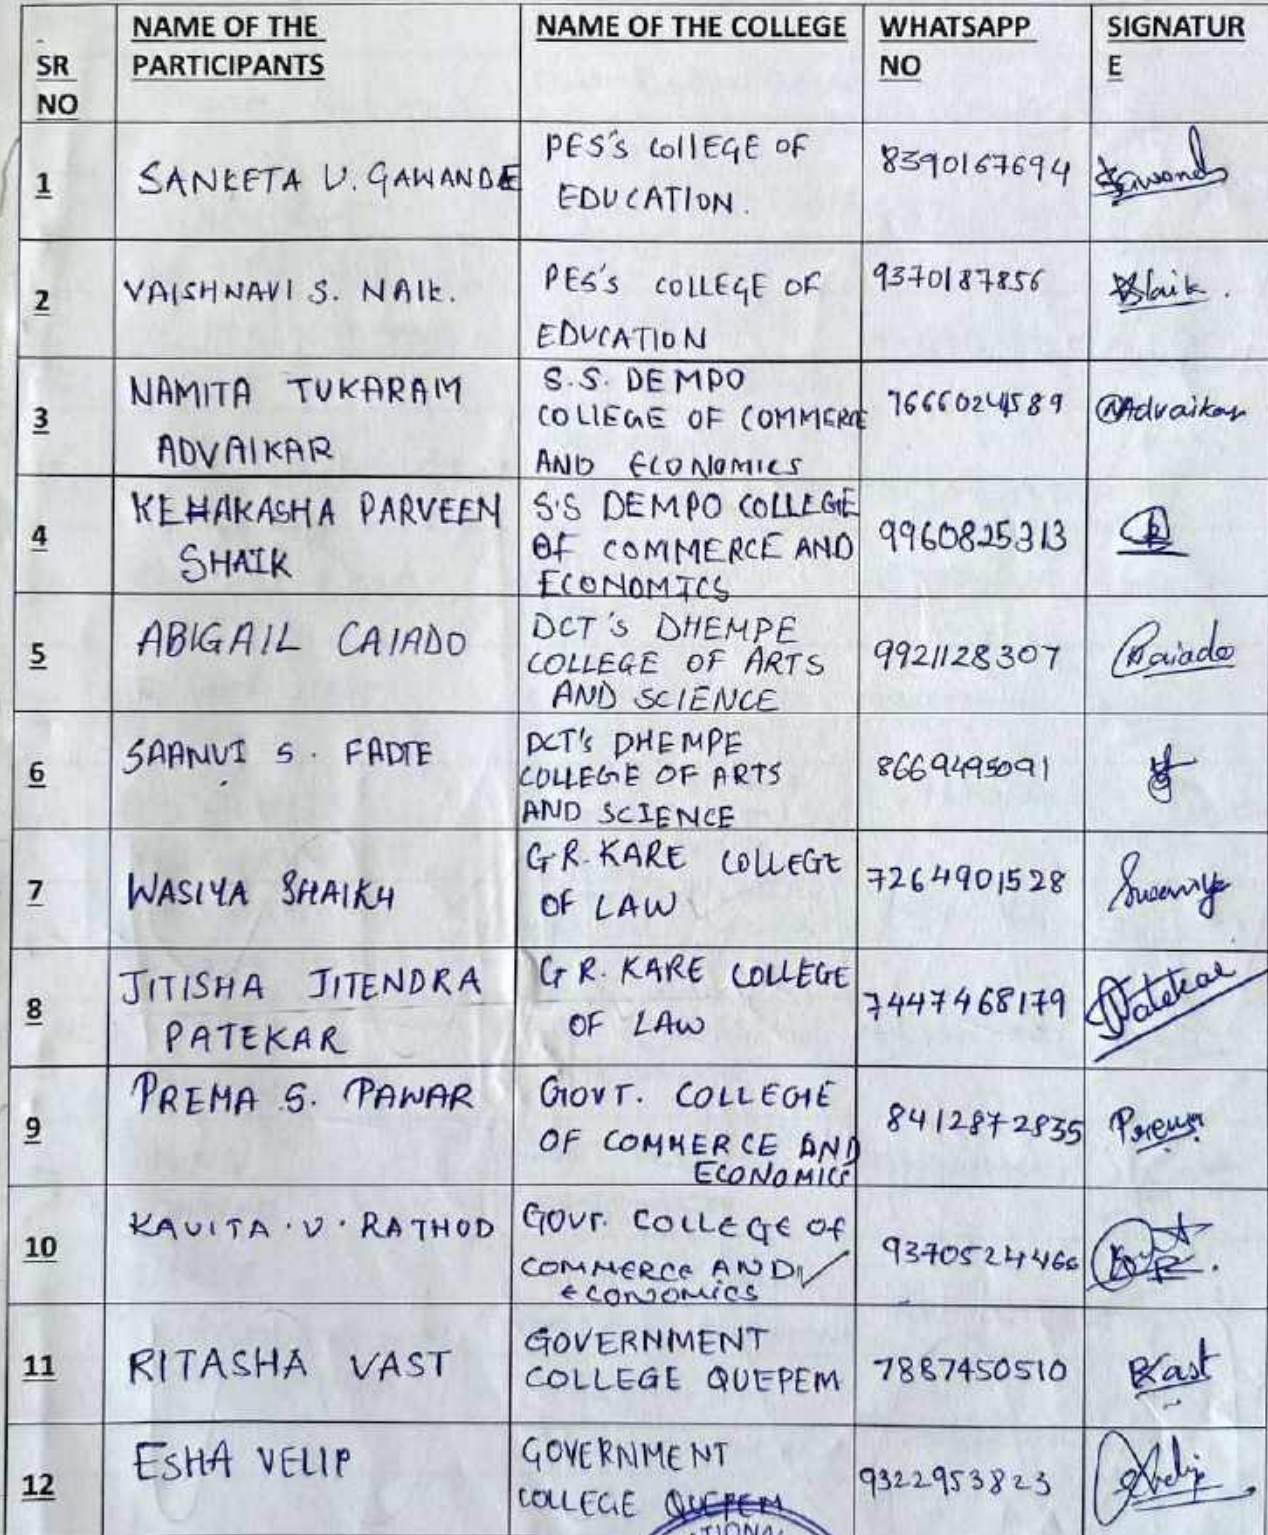 SR NO
NAME OF THE PARTICIPANTS
NAME OF THE COLLEGE
WHATSAPP NO
SIGNATURE
1
SANKETA V. GAWANDE
PES's COllEGE OF
EDUCATION.
8390167694
2
VAISHNAVI S. NAIK.
PES's COLLEGE OF
EDUCATION
9370187856
Naik.
3
NAMITA TUKARAM
ADVAIKAR
S.S. DEMPO
COLLEGE OF COMMERCE
AND ECONOMICS
7666024589
Advaikar
4
KEHAKASHA PARVEEN
SHAIK
S.S DEMPO COLLEGE
OF COMMERCE AND
ECONOMICS
9960825313
5
ABIGAIL CAIADO
DCT's DHEMPE
COLLEGE OF ARTS
AND SCIENCE
9921128307
Caiado
6
SAANVI S. FADTE
DCT's DHEMPE
COLLEGE OF ARTS
AND SCIENCE
8669495091
7
WASIYA SHAIKH
G.R. KARE COLLEGE
OF LAW
7264901528
8
JITISHA JITENDRA
PATEKAR
G.R. KARE COLLEGE
OF LAW
7447468179
Patekar
9
PREMA S. PAWAR
GOVT. COLLEGE
OF COMMERCE AND
ECONOMICS
8412872835
Prema
10
KAVITA.V.RATHOD
GOVT. COLLEGE OF
COMMERCE AND
ECONOMICS
9370524466
11
RITASHA VAST
GOVERNMENT
COLLEGE QUEPEM
7887450510
Vast
12
ESHA VELIP
GOVERNMENT
COLLEGE QUEPEM
9322953823